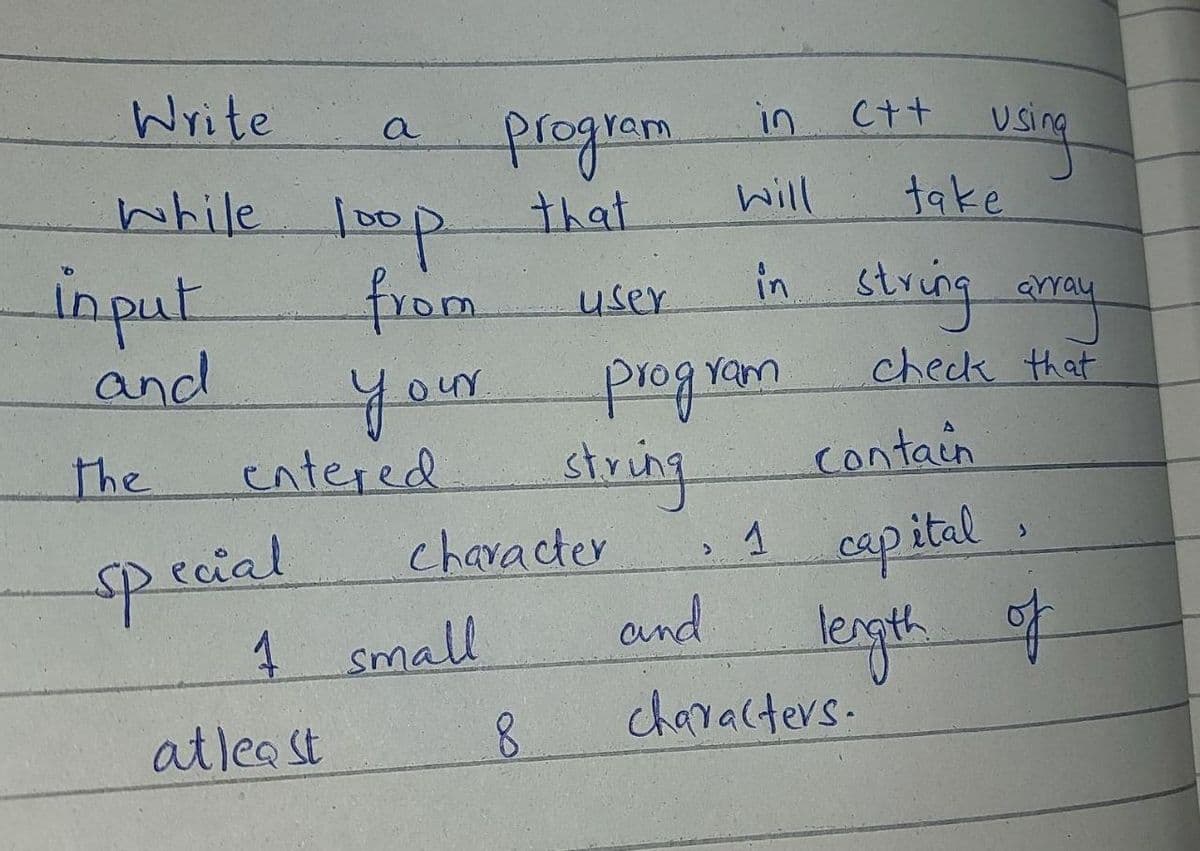 Write a program in C++ using
while loop that will take
input from user in string array
and your program check that
the entered string contain
special character , 1 capital ,
1 small and length of
atleast 8 characters.